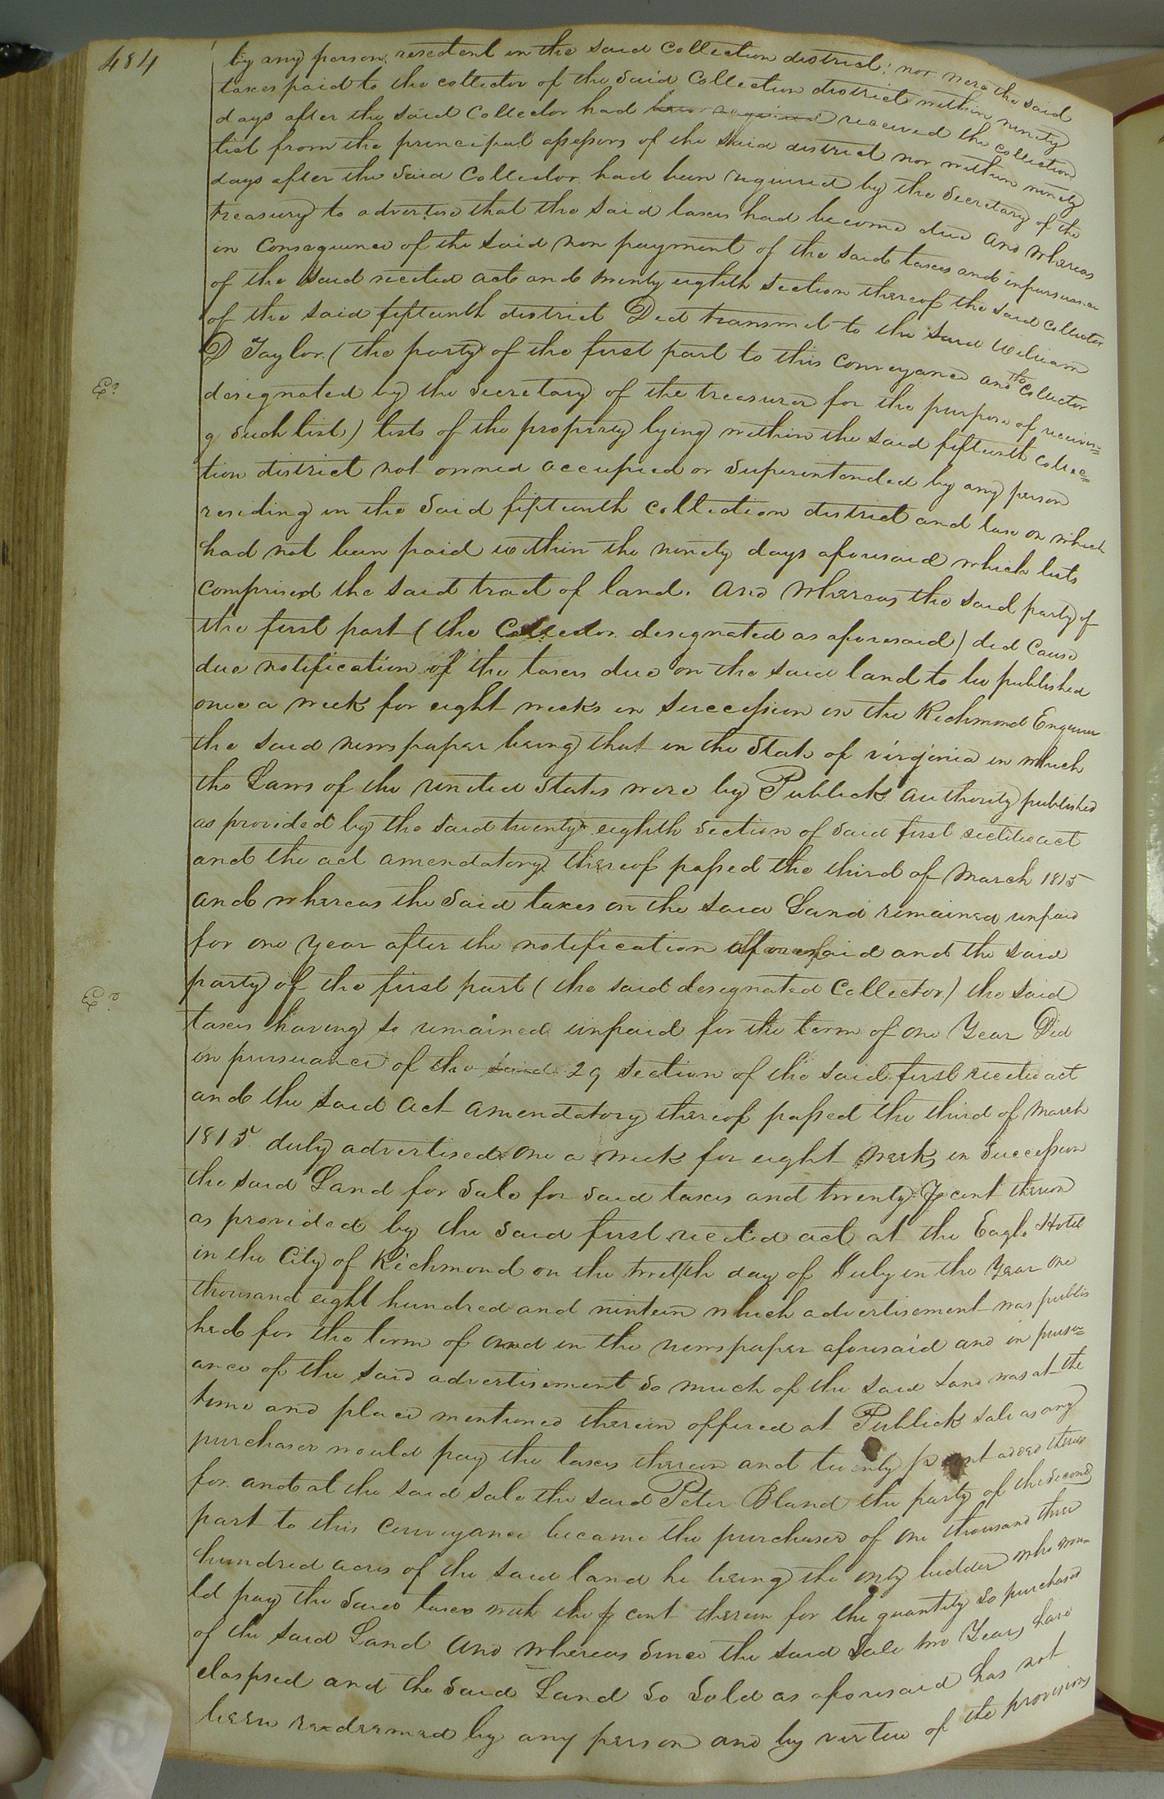 484
by any person resident in the said collection district; nor were the said
taxes paid to the collector of the said Collection district within ninety
days after the said Collector had been required received the collection
list from the principal assessors of the said district nor within ninety
days after the said Collector had been required by the Secretary of the
treasury to advertise that the said taxes had become due And Whereas
in Consequence of the said non payment of the said taxes and in pursuance
of the said recited act and twenty eighth section thereof the said Collector
of the said fifteenth district Did transmit to the said William
D Taylor (the party of the first part to this conveyance and the Collector
designated by the Secretary of the treasurer for the purpose of receivin=
g such list) lists of the property lying within the said fifteenth collec=
tion district not owned occupied or Superintended by any person
residing in the said fifteenth collection district and tax on which
had not been paid within the ninety days aforesaid which lists
comprised the said tract of land. And Whereas the said party of
the first part (the Collector designated as aforesaid) did Cause
due notification of the taxes due on the said land to be published
once a week for eight weeks in succession in the Richmond Enquirer
the said news paper being that in the State of virginia in which
the Laws of the united States were by Publick authority published
as provided by the said twenty eighth section of said first recited act
and the act amendatory thereof passed the third of March 1815
and whereas the said taxes on the said Land remained unpaid
for one year after the notification aforesaid and the said
party of the first part (the said designated Collector) the said
taxes having so remained unpaid for the term of one Year Did
in pursuance of the said 29 section of the said first recited act
and the said act amendatory thereof passed the third of March
1815 duly advertised one a week for eight weeks in Succession
the said Land for Sale for said taxes and twenty P cent thereon
as provided by the said first recited act at the Eagle Hotel
in the City of Richmond on the twelfth day of July in the Year one
thousand eight hundred and nintein which advertisement was publis
hed for the term of and in the newspaper aforesaid and in pursu=
ance of the said advertisement so much of the said Land was at the
time and place mentioned therein offered at Publick sale as any
purchaser would pay the taxes thereon and twenty p cent added there
for and at the said sale the said Peter Bland the party of the second
part to this conveyance became the purchaser of one thousand three
hundred acres of the said land he being the only bidder who wou=
ld pay the said taxes with the p cent thereon for the quantity so purchased
of the said Land And Whereas Since the said Sale two Years have
elaspsed and the said Land so sold as aforesaid has not
been redeemed by any person and by virtue of the provisions